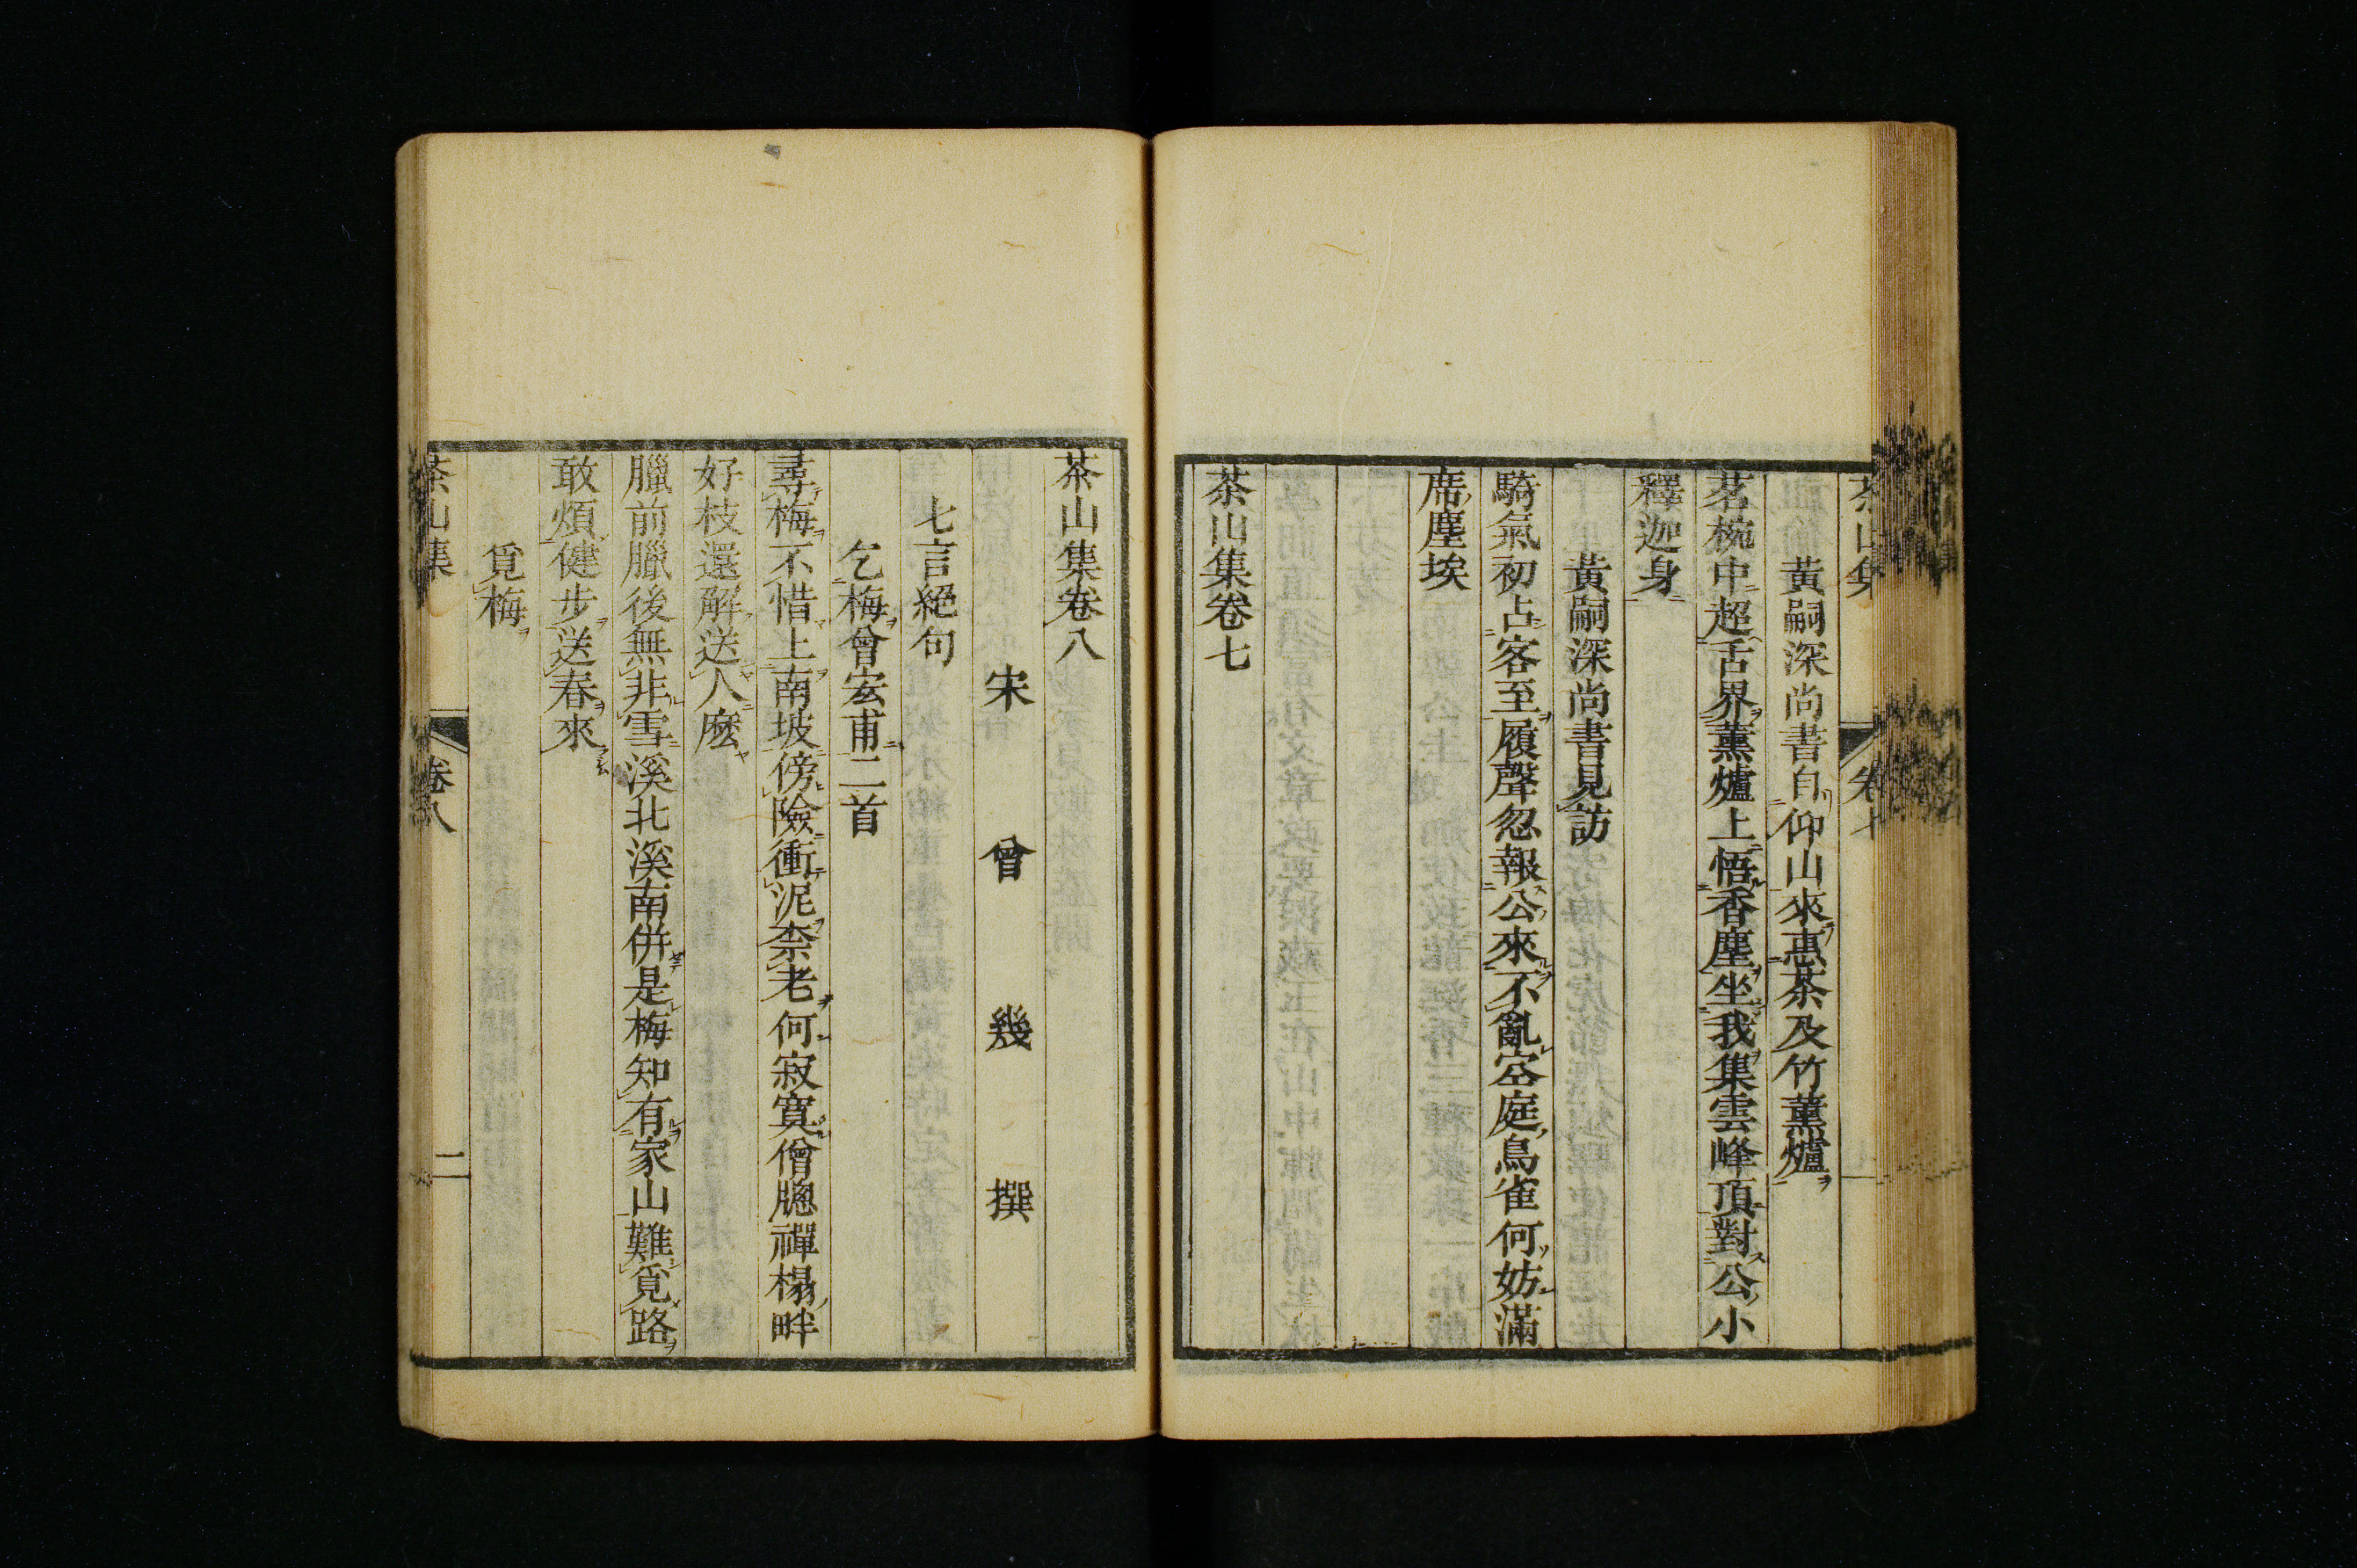 黄嗣深尚書自仰山來惠茶及竹薰爐
茗椀中超舌界薰爐上悟香塵坐我集雲峰頂對公小
釋迦身
黄嗣深尚書見訪
騎氣初占客至履聲忽報公來不亂空庭鳥雀何妨滿
席塵埃
茶山集卷七
茶山集卷八
宋 曾 幾 撰
七言絕句
乞梅曾宏甫二首
尋梅不惜上南坡傍險衝泥柰老何寂寞僧牎禪榻畔
好枝還解送人麽
臘前臘後無非雪溪北溪南併是梅知有家山難覓路
敢煩健步送春來
覓梅
茶山集 卷八 二